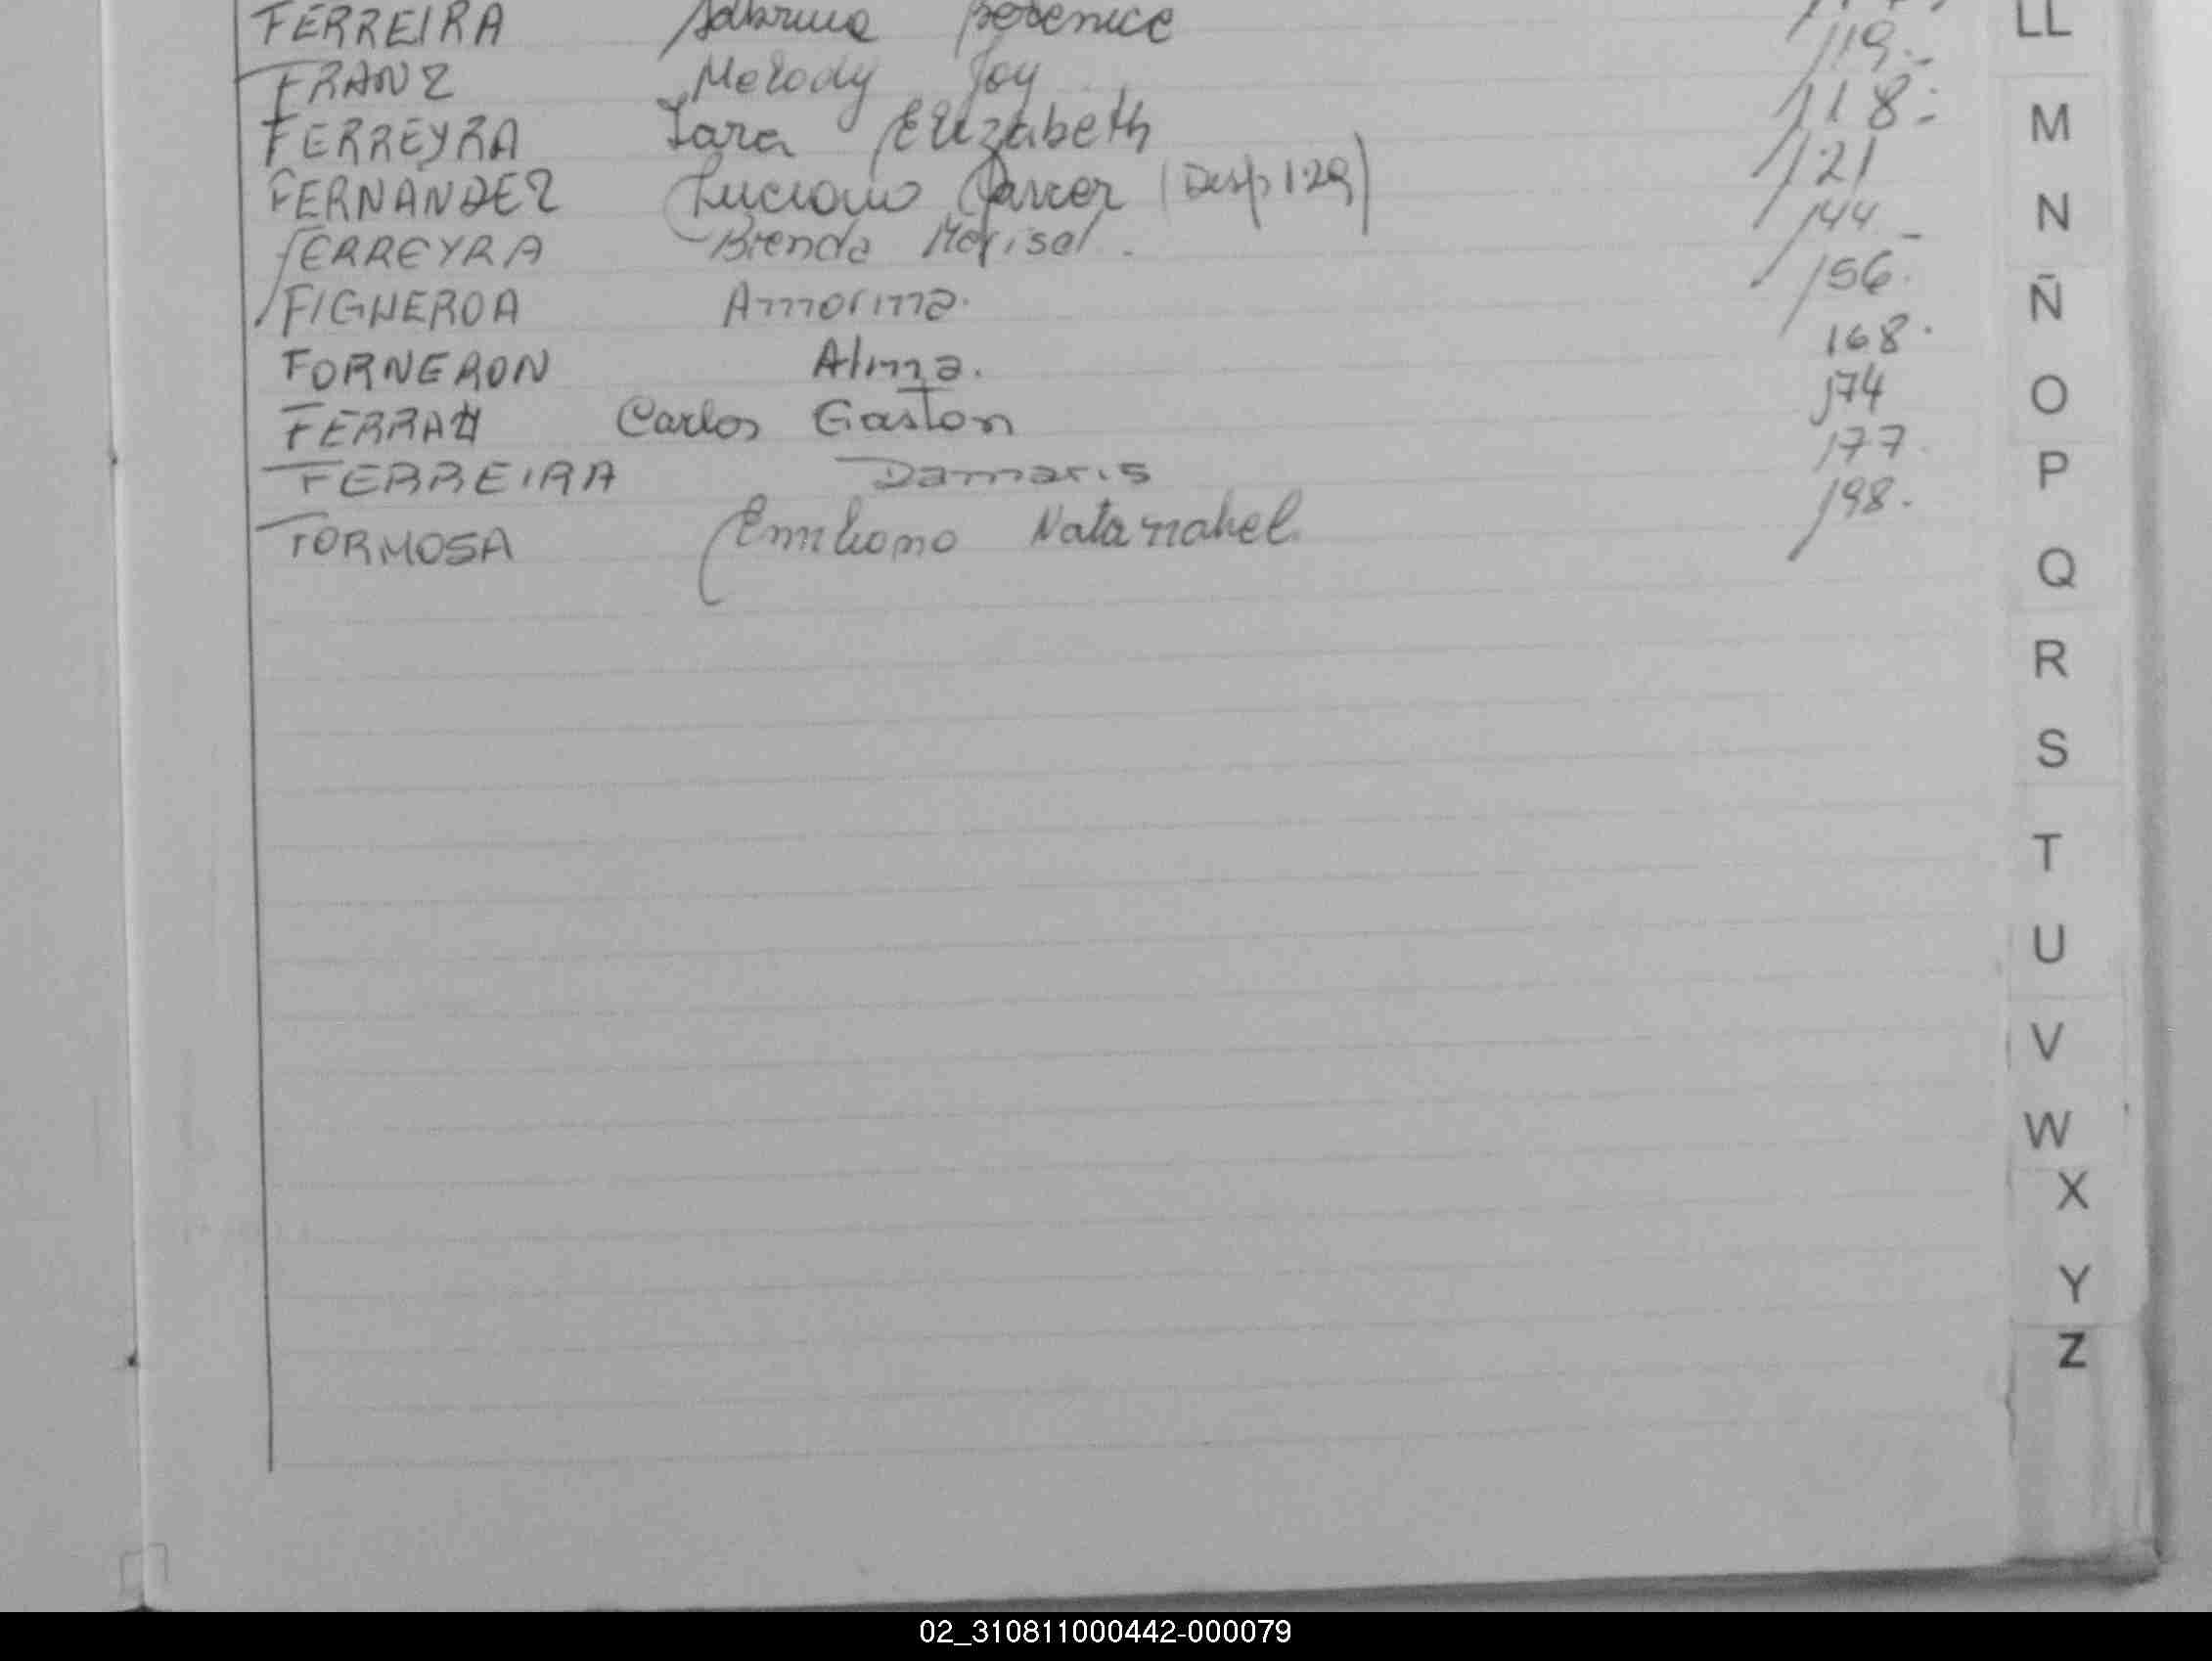 FERREIRA Sabrina Berenice
FRANZ Melody Joy 119.-
FERREYRA Iara Elizabeth 118.-
FERNANDEZ Luciano Javier (Desp 129) 121
FERREYRA Brenda Marisel. 144.-
FIGUEROA Amorina. 156.
FORNERON Alma. 168.
FERRAN Carlos Gaston 174
FERREIRA Damaris 177.
FORMOSA Emiliano Natanahel 198.
LL
M
N
Ñ
O
P
Q
R
S
T
U
V
W
X
Y
Z
02_310811000442-000079